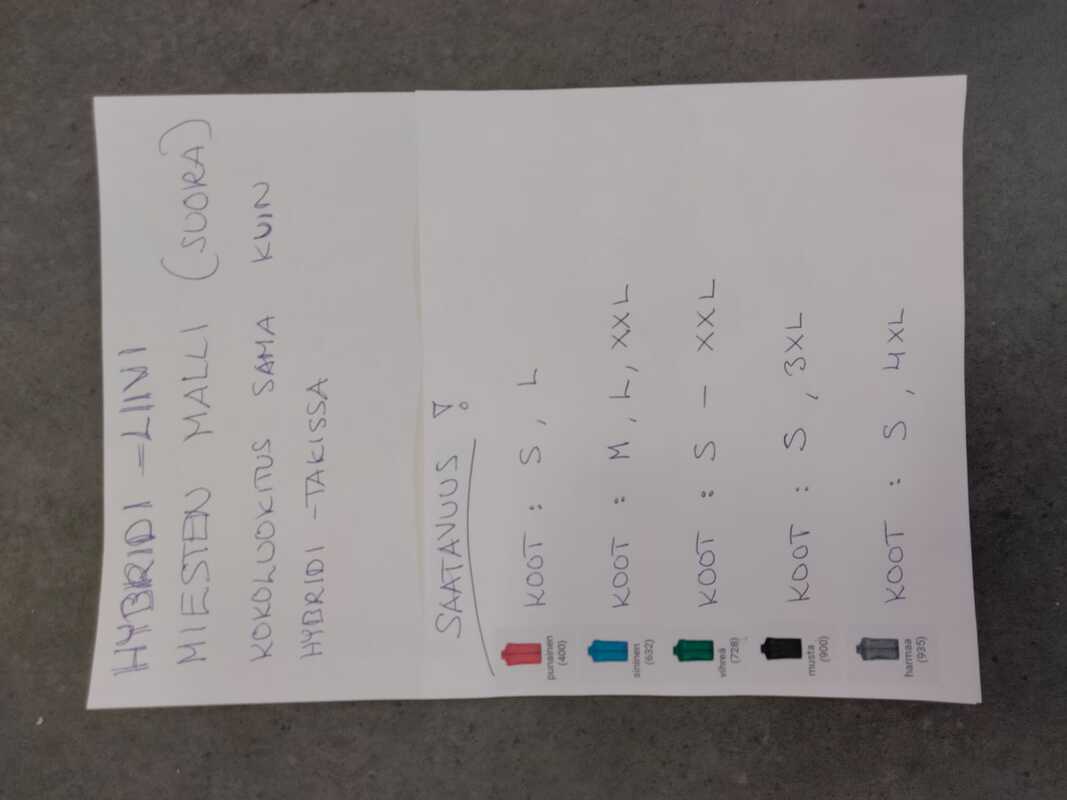 HYBRIDI -LIIVI
MIESTEN MALLI (SUORA)
KOKOLUOKITUS SAMA KUIN
HYBRIDI -TAKISSA
SAATAVUUS !
punainen
(400)
KOOT : S, L
sininen
(632)
KOOT : M, L, XXL
vihreä
(728)
KOOT : S - XXL
musta
(900)
KOOT : S, 3XL
harmaa
(935)
KOOT : S, 4XL